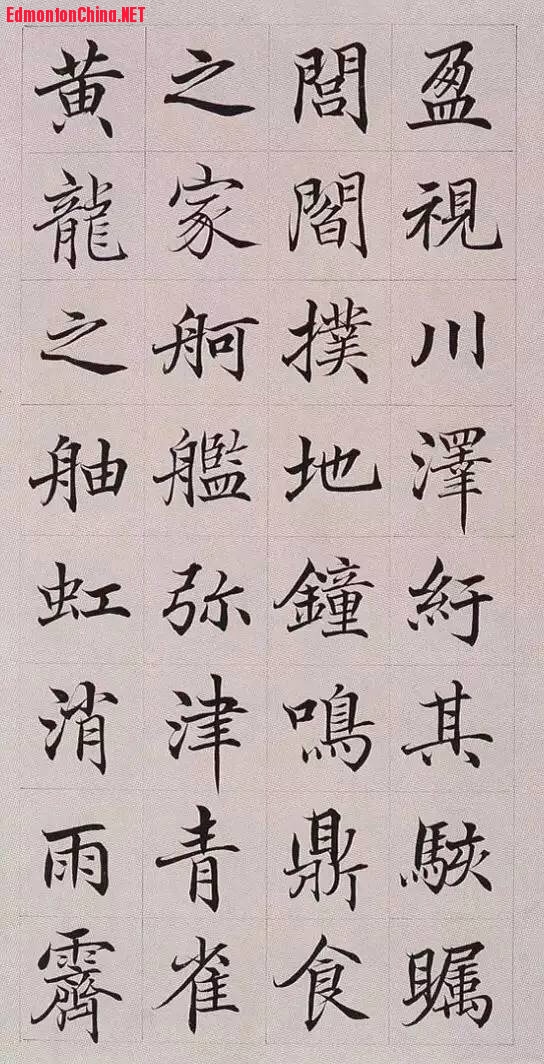 EdmontonChina.NET
盈視川澤紆其駭瞩
閭閻撲地鐘鳴鼎食
之家舸艦弥津青雀
黄龍之舳虹消雨霽